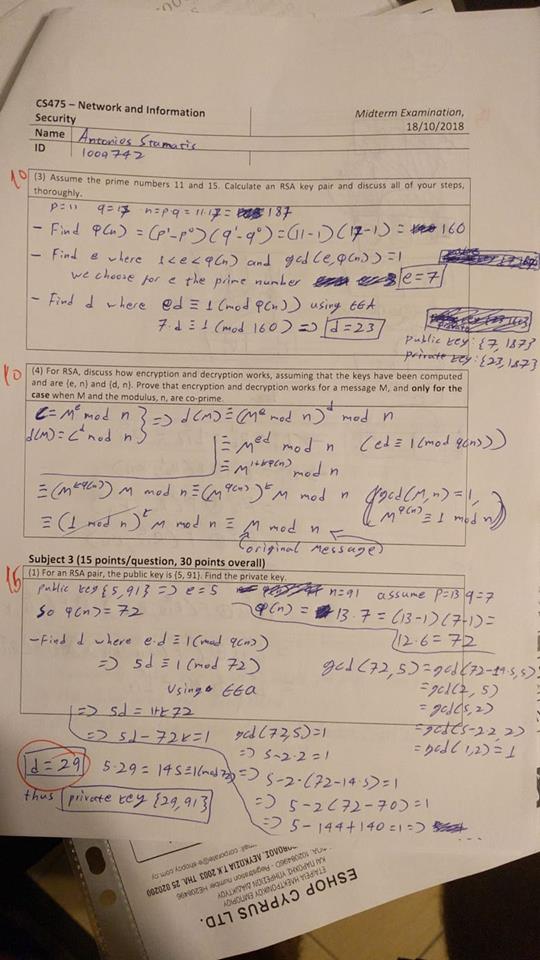 CS475 – Network and Information Security
Midterm Examination, 18/10/2018
Name Antonios Stamatis
ID 1009742
10
(3) Assume the prime numbers 11 and 15. Calculate an RSA key pair and discuss all of your steps,
thoroughly.
p=11 q=17 n=p.q=11.17= 187
– Find φ(n) = (p¹-p⁰)(q¹-q⁰)=(11-1)(17-1)= 160
– Find e where 1<e<φ(n) and gcd(e,φ(n))=1
we choose for e the prime number e=7
– Find d where ed ≡ 1(mod φ(n)) using EEA
7.d ≡ 1(mod 160) => d=23
public key:{7,187}
private key:{23,187}
10
(4) For RSA, discuss how encryption and decryption works, assuming that the keys have been computed
and are {e, n} and {d, n}. Prove that encryption and decryption works for a message M, and only for the
case when M and the modulus, n, are co-prime.
C=Mᵉ mod n } => d(M)≡(Mᵉ mod n)ᵈ mod n
d(M)=Cᵈ mod n
≡ Mᵉᵈ mod n (ed≡1(mod φ(n)))
≡ M¹⁺ᵏᵠ⁽ⁿ⁾ mod n
≡(Mᵏᵠ⁽ⁿ⁾) M mod n≡(Mᵠ⁽ⁿ⁾)ᵏ M mod n (gcd(M,n)=1,
Mᵠ⁽ⁿ⁾≡1 mod n)
≡ (1 mod n)ᵏ M mod n ≡ M mod n
(original message)
Subject 3 (15 points/question, 30 points overall)
15
(1) For an RSA pair, the public key is {5, 91}. Find the private key.
public key{5,91} => e=5 n=91 assume p=13 q=7
So φ(n)=72
φ(n)= 13.7=(13-1)(7-1)=
12.6=72
– Find d where e.d≡1(mod φ(n))
=> 5d≡1(mod 72)
Using EEA
gcd(72,5)=gcd(72-14.5,5)
=gcd(2,5)
=gcd(5,2)
=gcd(5-2.2,2)
=gcd(1,2)=1
=> 5d=1+k72
=> 5d-72k=1
gcd(72,5)=1
=> 5-2.2=1
d=29
5.29=145≡1(mod72)
=> 5-2.(72-14.5)=1
=> 5-2(72-70)=1
=> 5-144+140=1=>
thus private key {29,91}
ESHOP CYPRUS LTD.
ΕΤΑΙΡΕΙΑ ΗΛΕΚΤΡΟΝΙΚΟΥ ΕΜΠΟΡΙΟΥ
ΚΑΙ ΠΑΡΟΧΗΣ ΥΠΗΡΕΣΙΩΝ ΔΙΑΔΙΚΤΥΟΥ